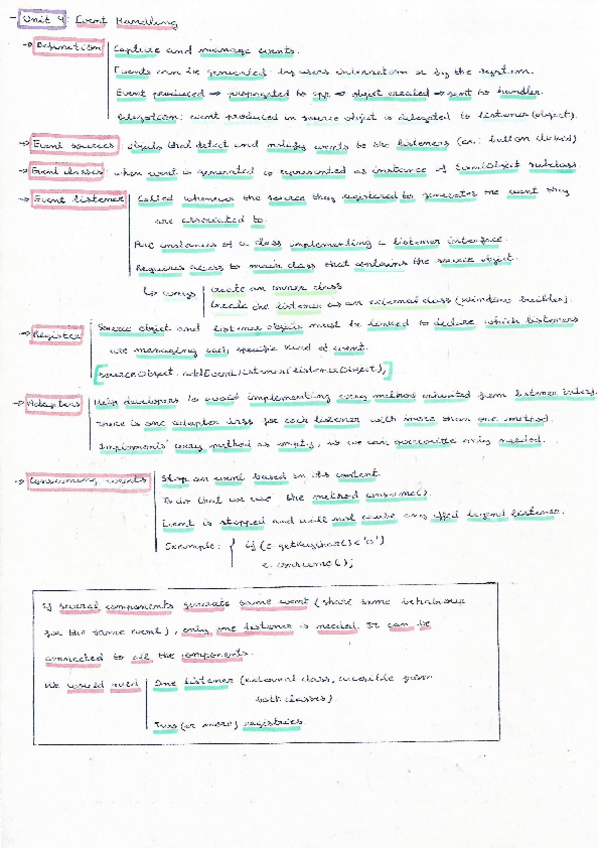 - Unit 4: Event Handling
→ Definition | Capture and manage events.
Events can be generated by users interaction or by the system.
Event produced → propagated to app → object created → sent to handler.
Delegation: event produced in source object is delegated to listener (object).
→ Event sources: objects that detect and notify events to the listeners (ex: button clicked)
→ Event classes: when event is generated is represented as instance of EventObject subclass.
→ Event listener | Called whenever the source they registered to generates the event they
are associated to.
Are instances of a class implementing a listener interface.
Requires access to main class that contains the source object.
↳ ways | Create an inner class
Create the listener as an external class (window builder).
→ Register | Source object and listener object must be linked to declare which listeners
are managing each specific kind of event.
[sourceObject.addEventListener(listenerObject);]
→ Adapters | Help developers to avoid implementing every method inherited from listener interf.
There is one adapter class for each listener with more than one method.
Implements every method as empty, so we can override only needed.
→ Consuming events | Stop an event based on its content.
To do that we use the method consume().
Event is stopped and will not cause any effect beyond listener.
Example: { if (e.getKeyChar() < '0')
e.consume();
If several components generate same event (share same behaviour
for the same event), only one listener is needed. It can be
connected to all the components.
We would need | One listener (external class, accesible from
both classes).
Two (or more) registries.